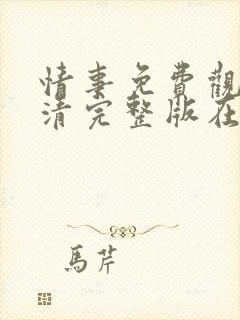 情事免費觀
清完整版在
馬芹